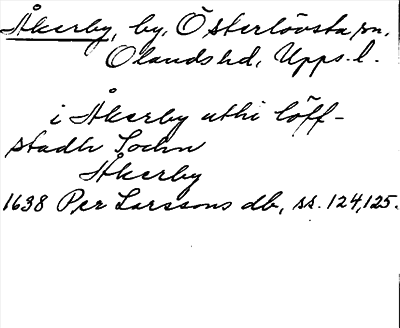 Åkerby, by, Österlövsta sn.
Olands hd, Upps. l.
i Åkerby uthi Löff-
stadh Sochn
Åkerby
1638 Per Larssons db, ss. 124, 125.